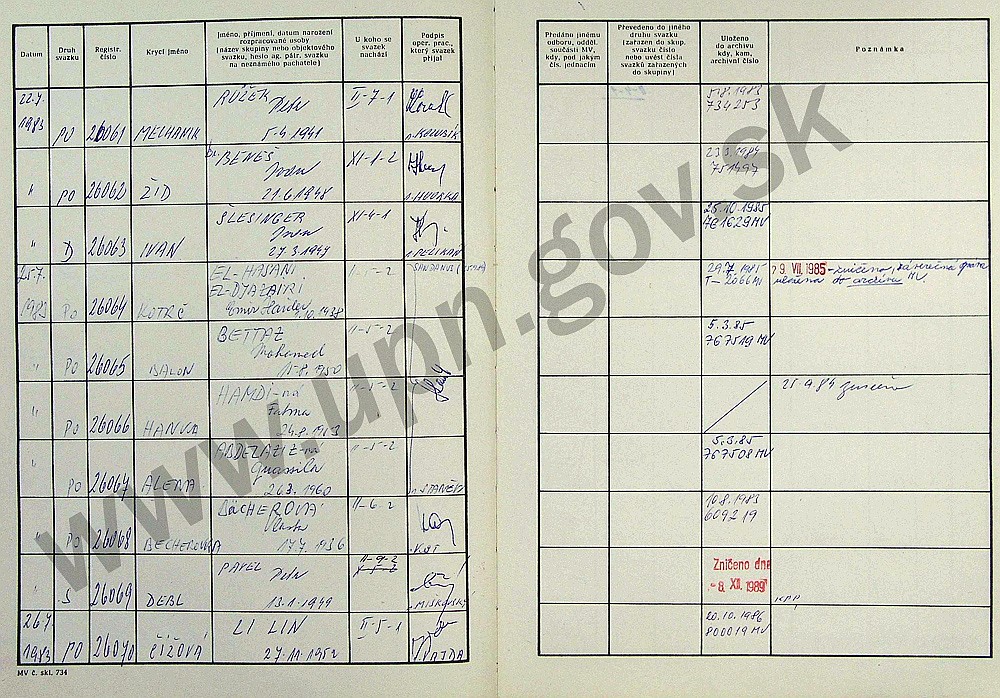 Datum
Druh
svazku
Registr.
číslo
Krycí jméno
Jméno, příjmení, datum narození
rozpracované osoby
(název skupiny nebo objektového
svazku, heslo ag. pátr. svazku
na neznámého pachatele)
U koho se
svazek
nachází
Podpis
oper. prac.,
který svazek
přijal
Předáno jinému
odboru, odděl.
součásti MV,
kdy, pod jakým
čís. jednacím
Převedeno do jiného
druhu svazku
(zařazen do skup.
svazku číslo
nebo uvést čísla
svazků zařazených
do skupiny)
Uloženo
do archivu
kdy, kam,
archivní číslo
Poznámka
22.7.
1983 PO 26061 MECHANIK
RŮŽEK
Petr
5.4.1941
II-7-1
5.8.1983
734253
" PO 26062 ŽID
Dr. BENEŠ
Ivan
21.6.1948
XI-1-2
HVORKA
23.3.1984
751497
" D 26063 IVAN
ŠLESINGER
Ivan
27.3.1947
XI-4-1
PELIKÁN
25.10.1985
781629 MV
25.7.
1983 PO 26064 KOTRČ
EL-HASANI
EL-DJAZAIRI
.10.1938
II-5-2
29.7.1985
T-2066 MV
9. VII. 1985 - zničeno, závěrečná zpráva
uložena do archivu MV.
" PO 26065 BALON
BETTAZ
Mohamed
1950
II-5-2
5.3.85
767519 MV
" PO 26066 HANKA
HAMDI-ná
Fatma
24.8.1963
II-5-2
25.9.84 zničeno
" PO 26067 ALENA
ABDELAZIZ-ná
Ouassila
1960
II-5-2
STANĚK
5.3.85
767508 MV
" PO 26068 BECHEROVKA
BÄCHEROVÁ
Vlasta
17.7.1936
II-6-2
KOT
10.8.1983
609219
" S 26069 DEBL
PAVEL
Petr
13.1.1949
II-9-2
MIŠKOVSKÝ
Zničeno dne
-8. XII. 1989
26.7.
1983 PO 26070 ČÍŽOVÁ
LI LIN
27.11.1952
II-5-1
VAJDA
20.10.1986
800019 MV
MV č. skl. 734
www.upn.gov.sk